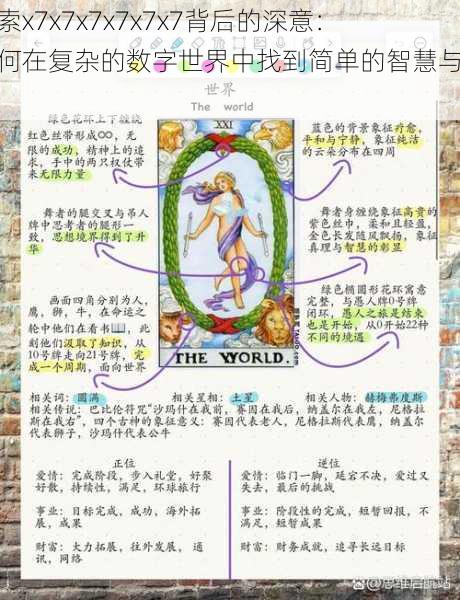 索x7x7x7x7x7x7背后的深意：
何在复杂的数字世界中找到简单的智慧与
世界
The world
绿色花环上下缠绕
红色丝带形成∞，无
限的成功，精神上的追
求，手中的两只权仗带
来无限力量
蓝色的背景象征疗愈，
平和与宁静，象征纯洁
的云朵分布在四周
XXI
舞者的腿交叉与吊人
牌中思考者的腿形一
致，思想境界得到了升
华
舞者身缠绕象征高贵的
紫色丝巾，柔和且轻盈，
金色长发随风飘扬，象征
真理与智慧的彰显
画面四角分别为人，
鹰，狮，牛，在命运之
轮中他们在看书📖，此
刻他们汲取了知识，从
10号牌走向21号牌，完
成一个周期，面向世界
绿色椭圆形花环寓意
完整，与愚人牌0号牌
闭环，愚人之旅是结束
也是开始，从0开始22种
不同的境遇
THE WORLD.
相关词：圆满 相关星相：土星 相关人物：赫梅弗度斯
相关传说：巴比伦符咒“沙玛什在我前，赛因在我后，纳盖尔在我左，尼格拉
斯在我右”，四个古神的象征意义：赛因代表老人，尼格拉斯代表鹰，纳盖尔
代表狮子，沙玛什代表公牛
正位
爱情：完成阶段，步入礼堂，好聚
好散，持续性，满足，环球旅行
事业：目标完成，成功，海外拓
展，成果
财富：大力拓展，往外发展，通
讯，网络
逆位
爱情：临门一脚，延宕不决，爱过又
失去，最后的挑战
事业：阶段性的完成，短暂回报，不
满足，短暂成果
财富：财务成就，追寻长远目标